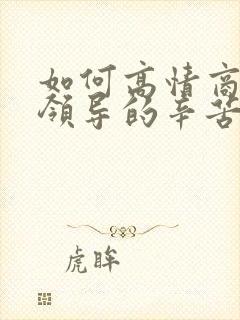 如何高情商
领导的辛苦
虎眸